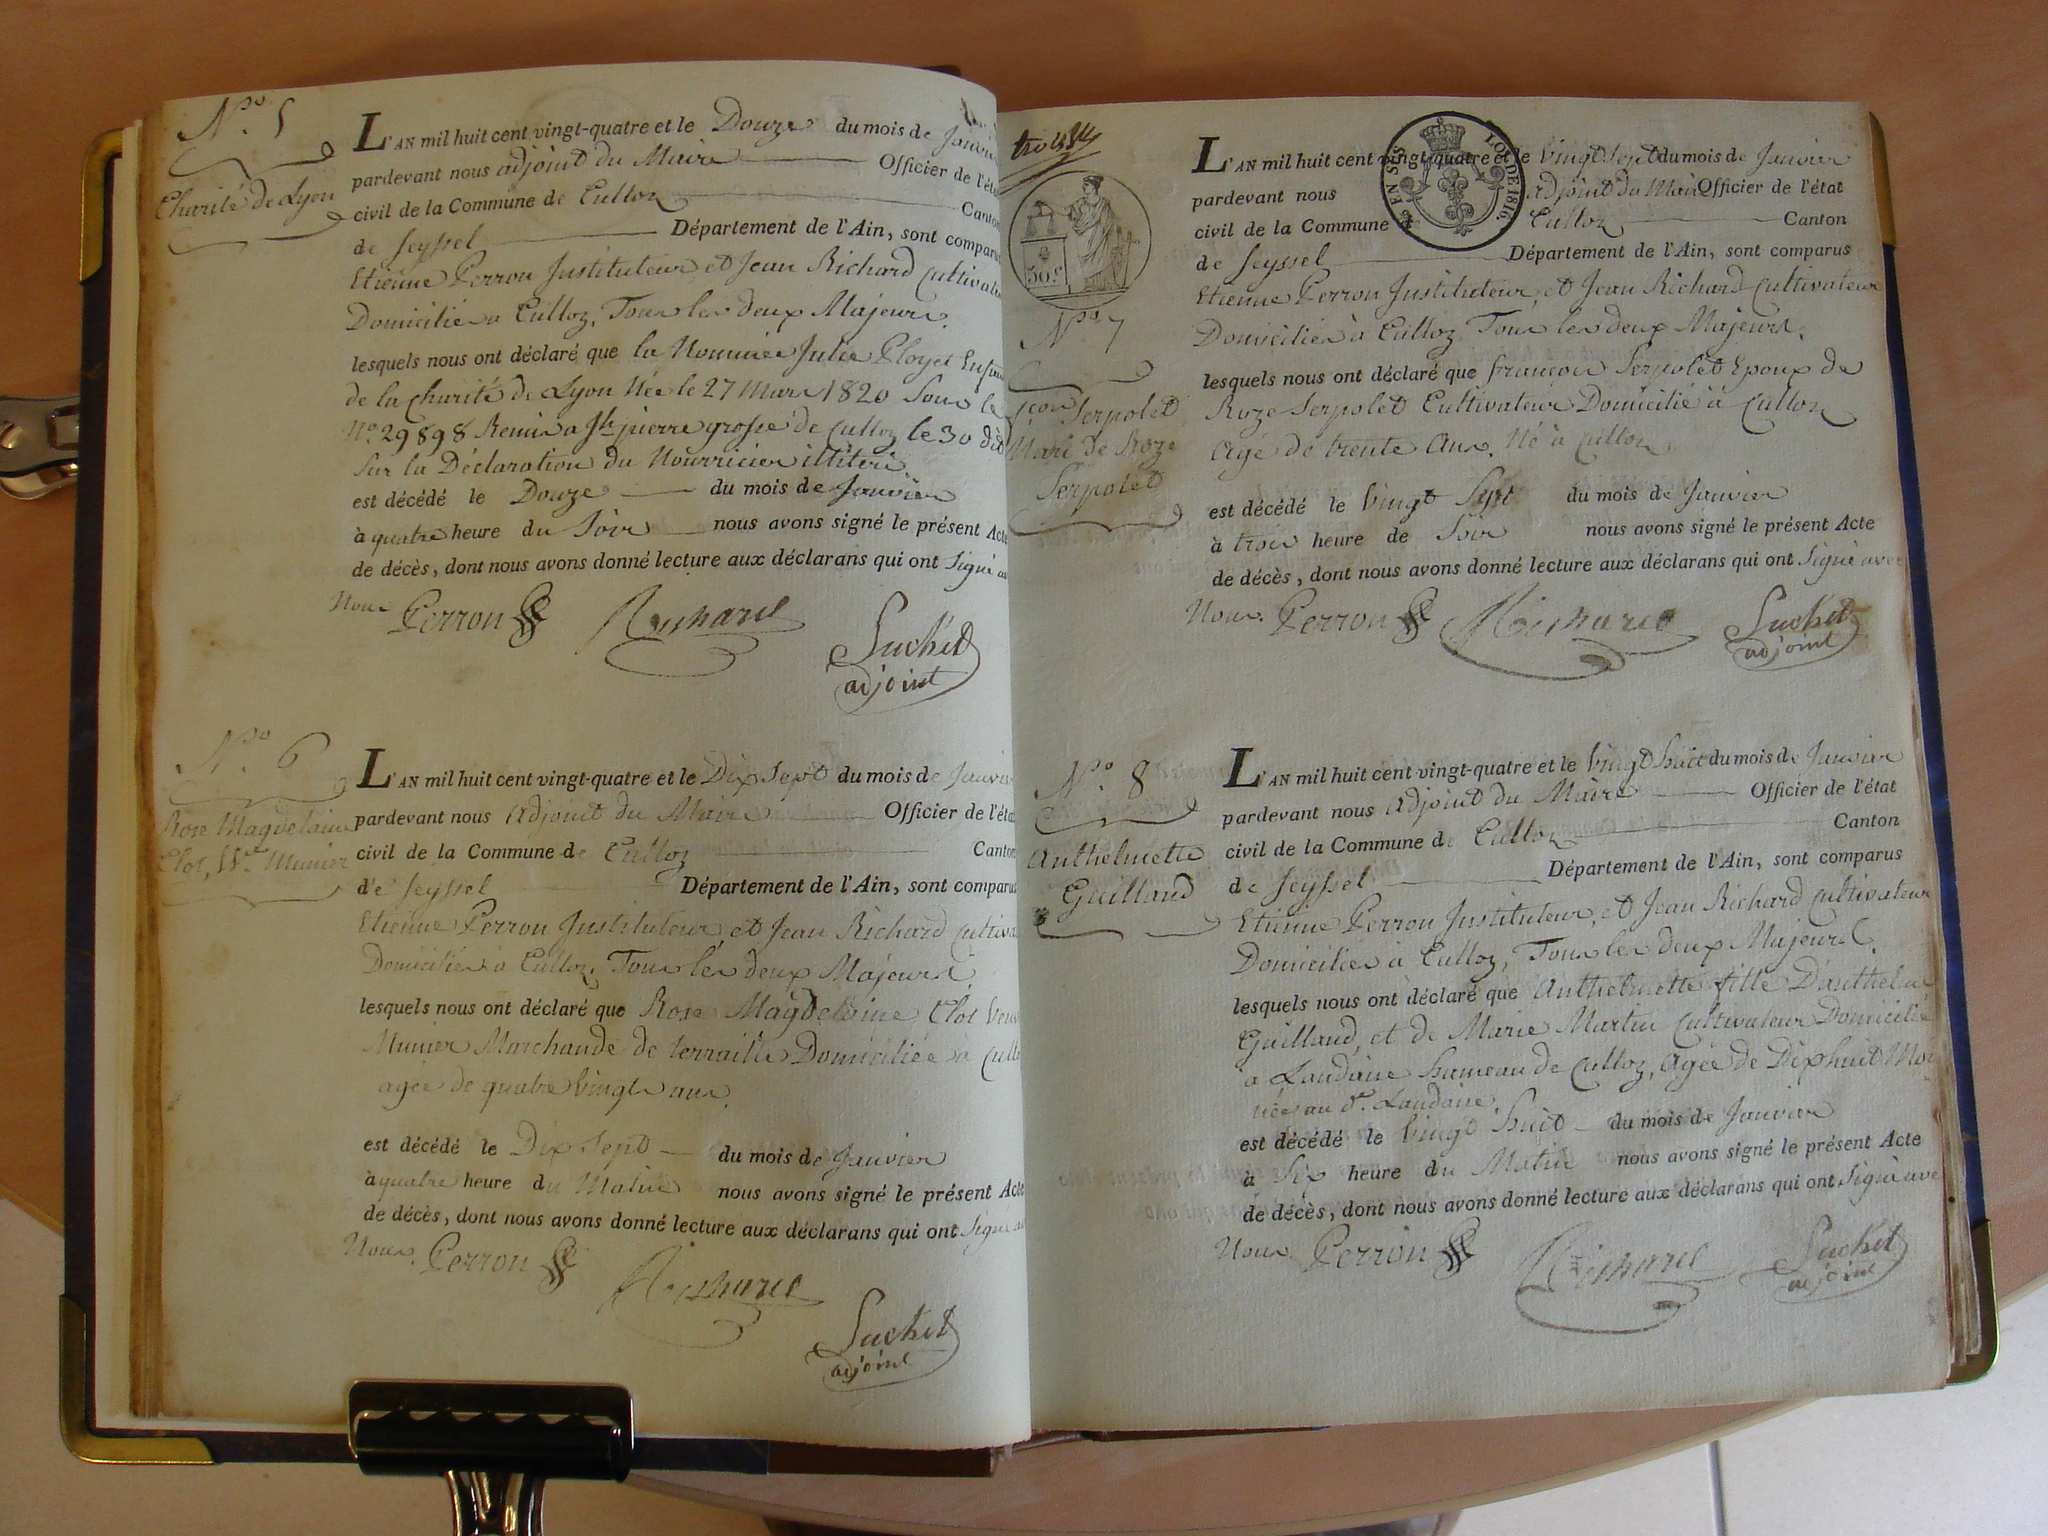 N.º 5
Charité de Lyon
L'AN mil huit cent vingt-quatre et le Douze du mois de Janvier
pardevant nous adjoint du Maire Officier de l'état
civil de la Commune de Culloz Canton
de Seyssel Département de l'Ain, sont comparus
Etienne Perron Instituteur et Jean Richard Cultivateur
Domiciliés à Culloz, Tous les deux Majeurs.
lesquels nous ont déclaré que la Nommée Julie Ployet Enfant
de la Charité de Lyon Née le 27 Mars 1820 Sous le
N.º 29898 Remis a Jh pierre grosse de Culloz le 30 dit
Sur la Déclaration du Nourricier illiteré.
est décédé le Douze du mois de Janvier
à quatre heure du Soir nous avons signé le présent Acte
de décès, dont nous avons donné lecture aux déclarans qui ont Signé avec
Nous. Perron Richard
Suchet
adjoint
N.º 6
Rose Magdelaine
Clot, Vve. Munier
L'AN mil huit cent vingt-quatre et le Dix Sept du mois de Janvier
pardevant nous Adjoint du Maire Officier de l'état
civil de la Commune de Culloz Canton
de Seyssel Département de l'Ain, sont comparus
Etienne Perron Instituteur, et Jean Richard Cultiva
Domiciliés à Culloz. Tous les deux Majeurs.
lesquels nous ont déclaré que Rose Magdelaine Clot Veuve
Munier Marchande de terraille Domiciliée a Culloz
agée de quatre Vingts ans.
est décédé le Dix Sept du mois de Janvier
à quatre heure du Matin nous avons signé le présent Acte
de décès, dont nous avons donné lecture aux déclarans qui ont Signé avec
Nous. Perron Richard
Suchet
adjoint
trois
50.c
N.º 7
Serpolet
Mari de Roze
Serpolet
EN SUS LOI DE 1816.
L'AN mil huit cent vingt-quatre et le Vingt Sept du mois de Janvier
pardevant nous adjoint du Maire Officier de l'état
civil de la Commune de Culloz Canton
de Seyssel Département de l'Ain, sont comparus
Etienne Perron Instituteur, et Jean Richard Cultivateur
Domiciliés à Culloz Tous les deux Majeurs.
lesquels nous ont déclaré que françois Serpolet Epoux de
Roze Serpolet Cultivateur Domicilié à Culloz
Agé de trente Ans. Né à Culloz
est décédé le Vingt Sept du mois de Janvier
à trois heure de Soir nous avons signé le présent Acte
de décès, dont nous avons donné lecture aux déclarans qui ont Signé avec
Nous. Perron Richard Suchet
adjoint
N.º 8
Anthelmette
Guilland
L'AN mil huit cent vingt-quatre et le Vingt huit du mois de Janvier
pardevant nous Adjoint du Maire Officier de l'état
civil de la Commune de Culloz Canton
de Seyssel Département de l'Ain, sont comparus
Etienne Perron Instituteur, et Jean Richard Cultivateur
Domiciliés à Culloz, Tous les deux Majeurs.
lesquels nous ont déclaré que Anthelmette fille D'anthelme
Guilland, et de Marie Martin Cultivateur Domiciliés
a Landaise hameau de Culloz, Agée de Dixhuit Mois
née au d.t Landaise.
est décédé le Vingt huit du mois de Janvier
à Six heure du Matin nous avons signé le présent Acte
de décès, dont nous avons donné lecture aux déclarans qui ont Signé avec
Nous. Perron Richard Suchet
adjoint